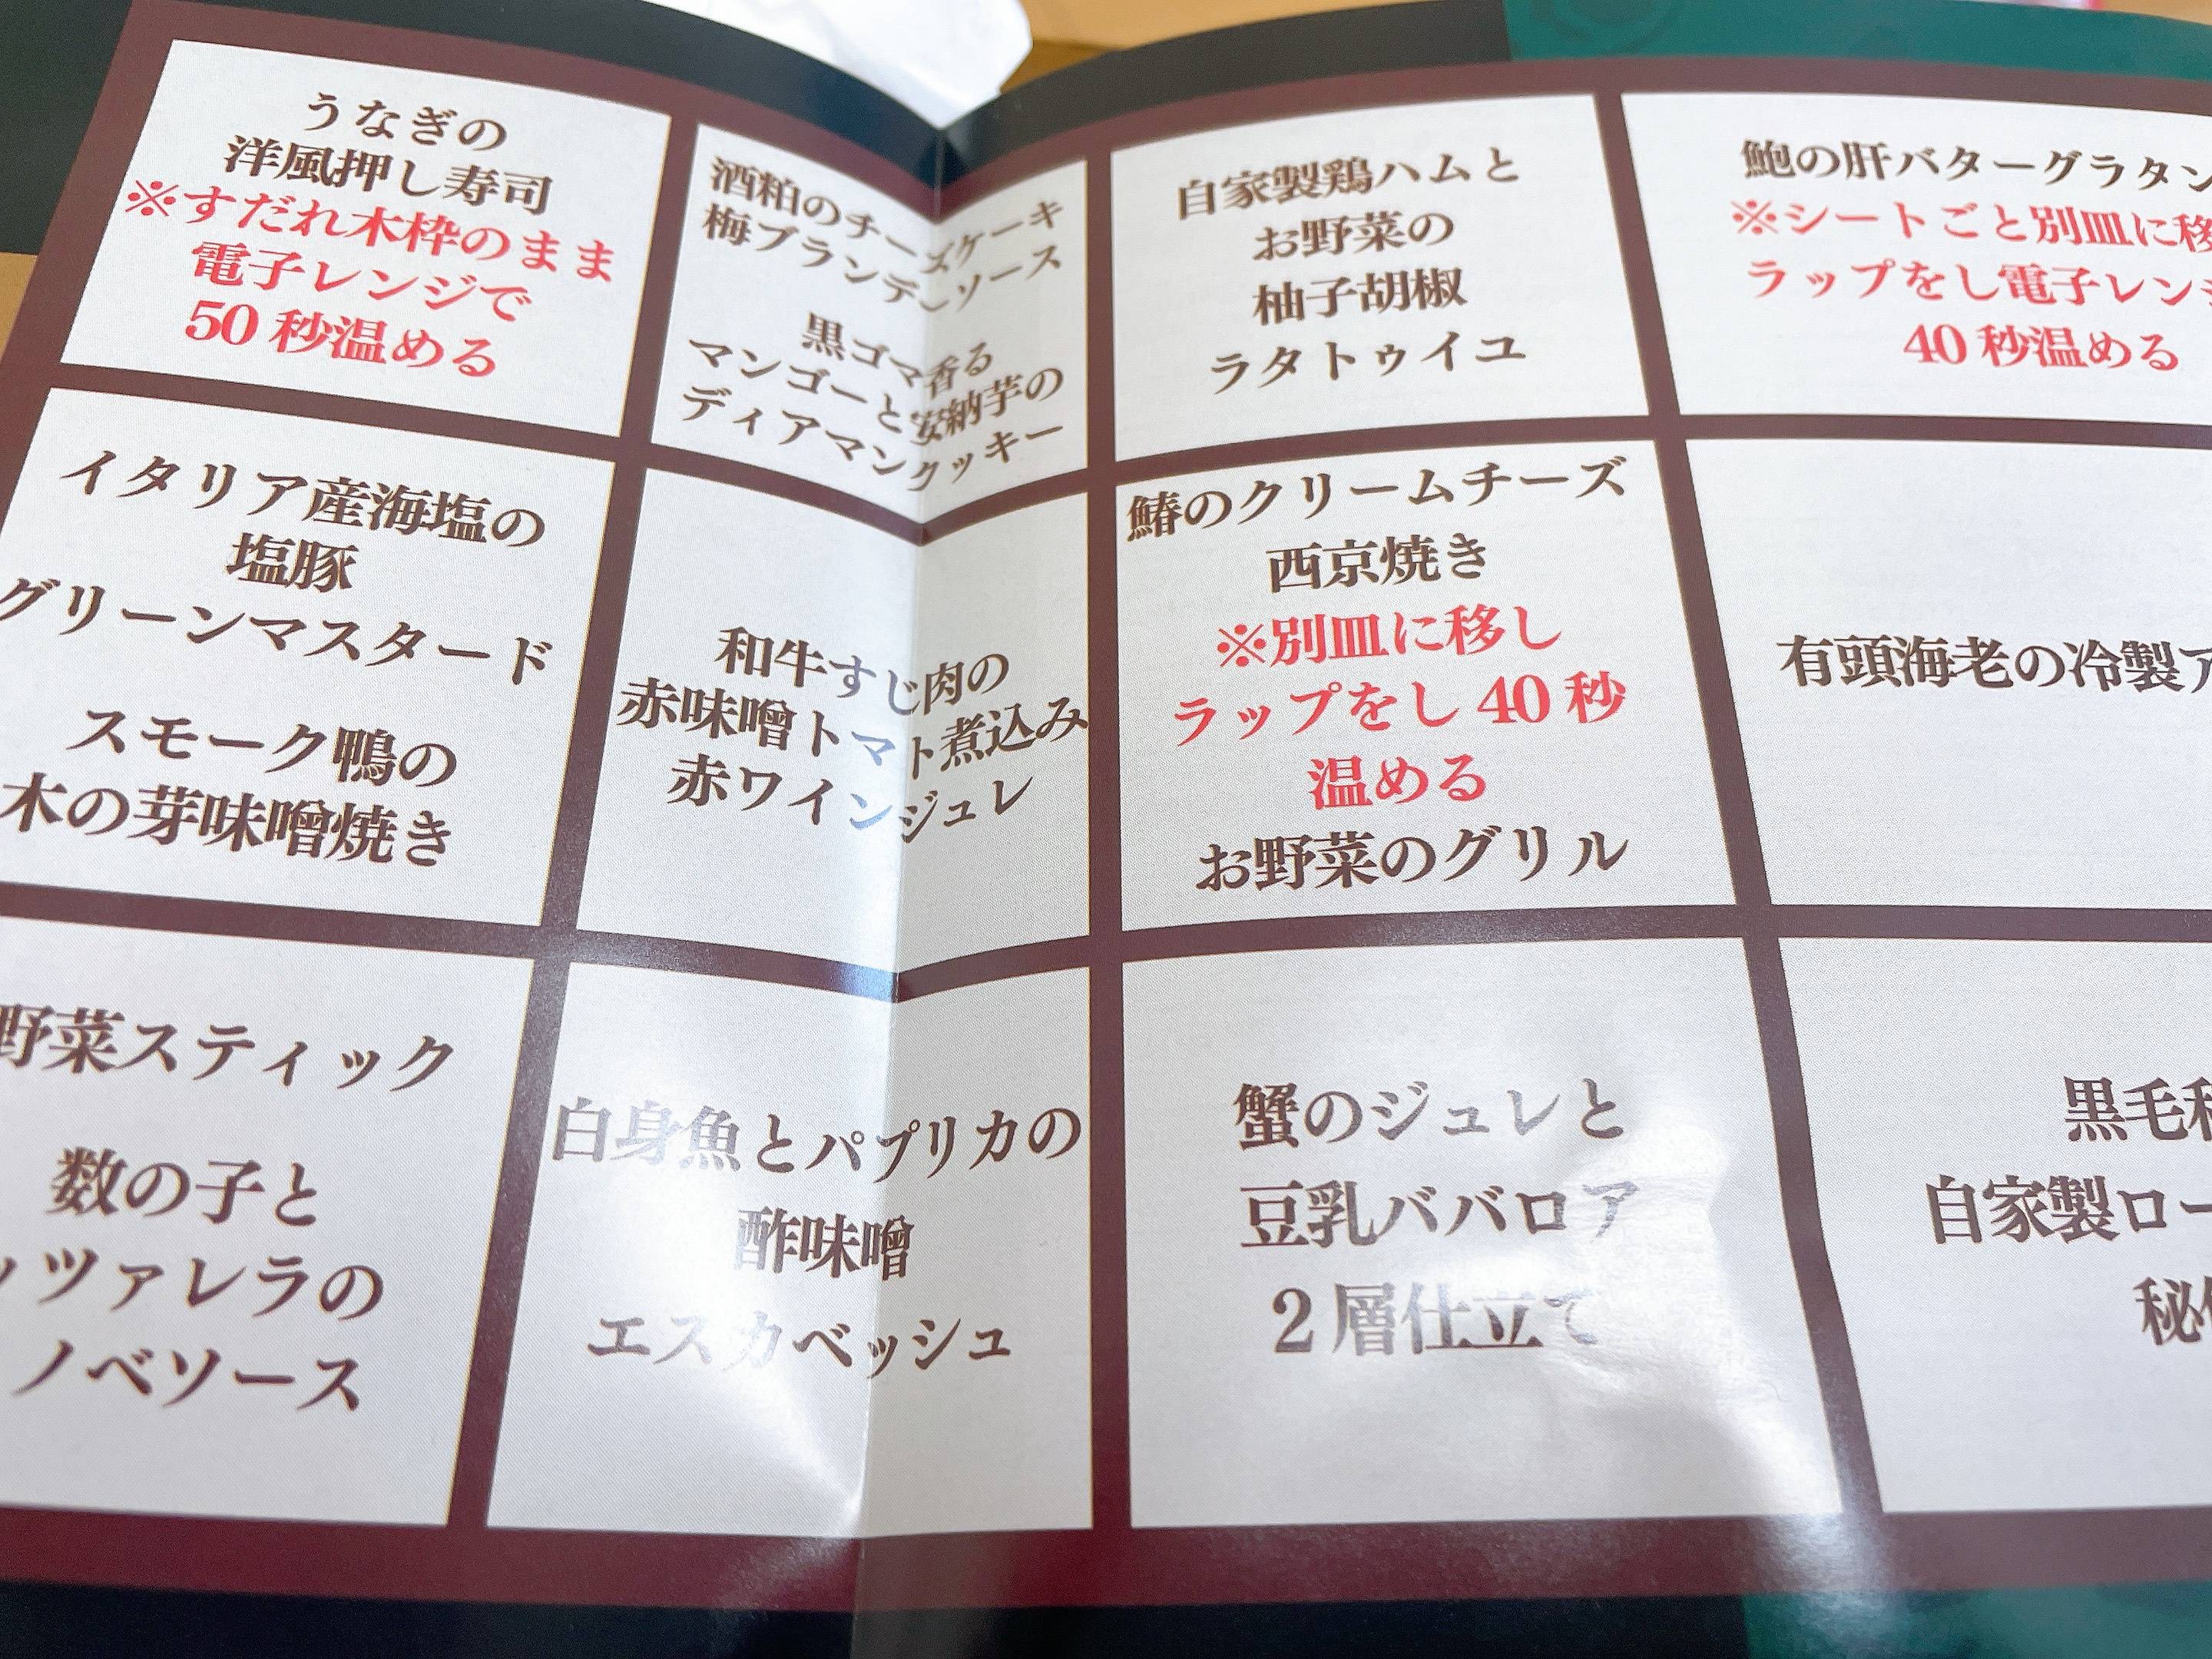 うなぎの
洋風押し寿司
※すだれ木枠のまま
電子レンジで
50秒温める
酒粕のチーズケーキ
梅ブランデーソース
黒ゴマ香る
マンゴーと安納芋の
ディアマンクッキー
自家製鶏ハムと
お野菜の
柚子胡椒
ラタトゥイユ
鮑の肝バターグラタン
※シートごと別皿に移
ラップをし電子レン
40秒温める
イタリア産海塩の
塩豚
グリーンマスタード
スモーク鴨の
木の芽味噌焼き
和牛すじ肉の
赤味噌トマト煮込み
赤ワインジュレ
鰆のクリームチーズ
西京焼き
※別皿に移し
ラップをし40秒
温める
お野菜のグリル
有頭海老の冷製ア
野菜スティック
数の子と
ッツァレラの
ノベソース
白身魚とパプリカの
酢味噌
エスカベッシュ
蟹のジュレと
豆乳ババロア
2層仕立て
黒毛
自家製ロー
秘